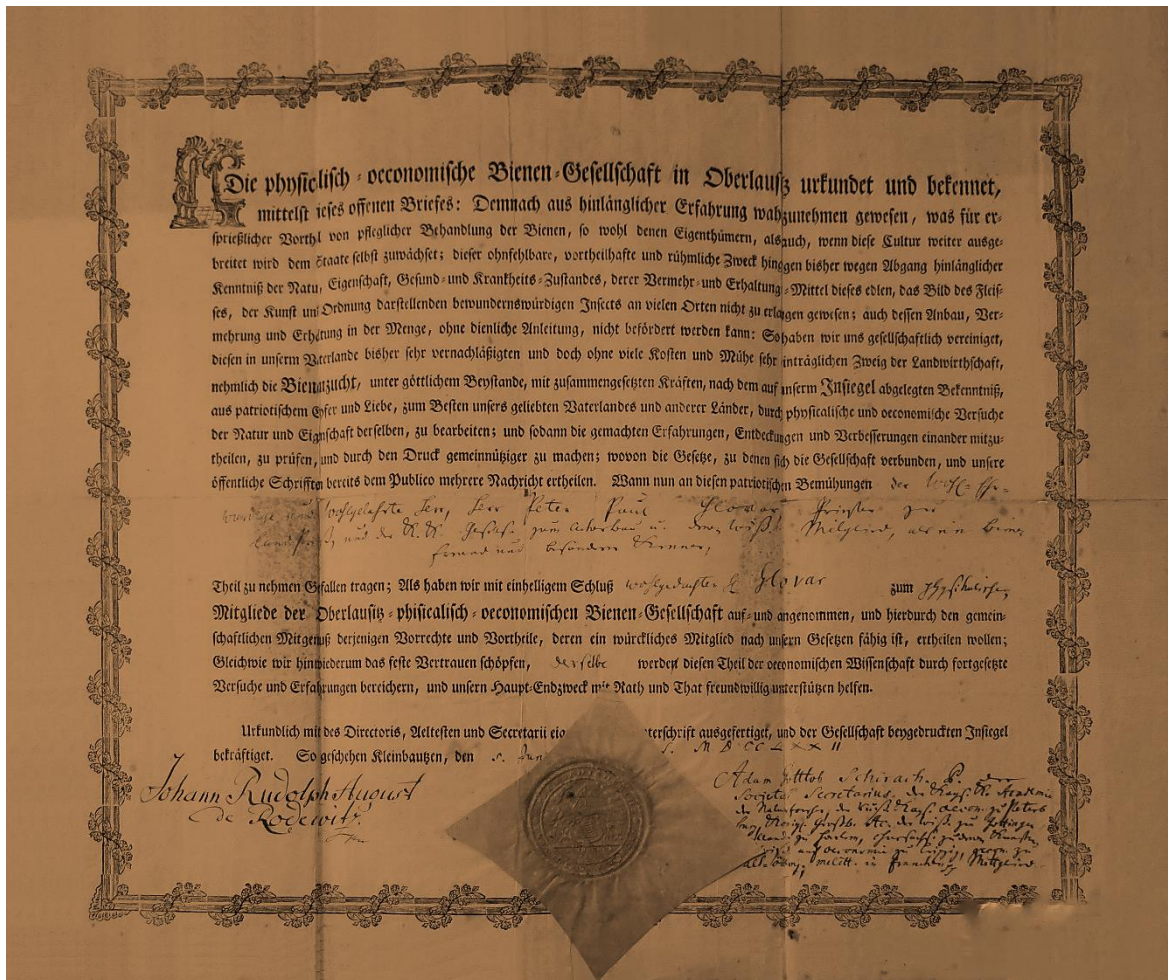 Die physicalisch-oeconomische Bienen-Gesellschaft in Oberlausitz urkundet und bekennet,
mittelst dieses offenen Briefes: Demnach aus hinlänglicher Erfahrung wahrzunehmen gewesen, was für er-
sprießlicher Vortheil von pfleglicher Behandlung der Bienen, so wohl denen Eigenthümern, als auch, wenn diese Cultur weiter ausge-
breitet wird dem Staate selbst zuwächset; dieser ohnfehlbare, vortheilhafte und rühmliche Zweck hingegen bisher wegen Abgang hinlänglicher
Kenntniß der Natur, Eigenschaft, Gesund- und Krankheits-Zustandes, derer Vermehr- und Erhaltung-Mittel dieses edlen, das Bild des Fleis-
ses, der Kunst und Ordnung darstellenden bewundernswürdigen Insects an vielen Orten nicht zu erlangen gewesen; auch dessen Anbau, Ver-
mehrung und Erhaltung in der Menge, ohne dienliche Anleitung, nicht befördert werden kann: So haben wir uns gesellschaftlich vereiniget,
diesen in unserm Vaterlande bisher sehr vernachläßigten und doch ohne viele Kosten und Mühe sehr einträglichen Zweig der Landwirthschaft,
nehmlich die Bienenzucht, unter göttlichem Beystande, mit zusammengesetzten Kräften, nach dem auf unserm Insiegel abgelegten Bekenntniß,
aus patriotischem Eyfer und Liebe, zum Besten unsers geliebten Vaterlandes und anderer Länder, durch physicalische und oeconomische Versuche
der Natur und Eigenschaft derselben, zu bearbeiten; und sodann die gemachten Erfahrungen, Entdeckungen und Verbesserungen einander mitzu-
theilen, zu prüfen, und durch den Druck gemeinnütziger zu machen; wovon die Gesetze, zu denen sich die Gesellschaft verbunden, und unsere
öffentliche Schriften bereits dem Publico mehrere Nachricht ertheilen. Wann nun an diesen patriotischen Bemühungen der Wohl-Ehr-
wohlgelahrte Herr, Herr Peter Paul Glovar Priester zu
und der K. K. Gesellsch. zum Ackerbau u. Mitglied, als ein Bienen
freund und besonderer Kenner,
Theil zu nehmen Gefallen tragen; Als haben wir mit einhelligem Schluß wohlgedachten H. Glovar zum physikalischen
Mitgliede der Oberlausitz-phisicalisch-oeconomischen Bienen-Gesellschaft auf- und angenommen, und hierdurch den gemein-
schaftlichen Mitgenuß derjenigen Vorrechte und Vortheile, deren ein würckliches Mitglied nach unsern Gesetzen fähig ist, ertheilen wollen;
Gleichwie wir hinwiederum das feste Vertrauen schöpfen, derselbe werden diesen Theil der oeconomischen Wissenschaft durch fortgesetzte
Versuche und Erfahrungen bereichern, und unsern Haupt-Endzweck mit Rath und That freundwillig unterstützen helfen.
Urkundlich mit des Directoris, Aeltesten und Secretarii Unterschrift ausgefertiget, und der Gesellschaft beygedruckten Insiegel
bekräftiget. So geschehen Kleinbautzen, den 5. MDCCLXXII
Johann Rudolph August
de Rodewitz
Adam Gottlob Schirach. P. der
Societät Secretarius, der Kayserl. Academie
der Naturforscher, zu Peters
zu Göttingen
zu Leipzig
Mitglied